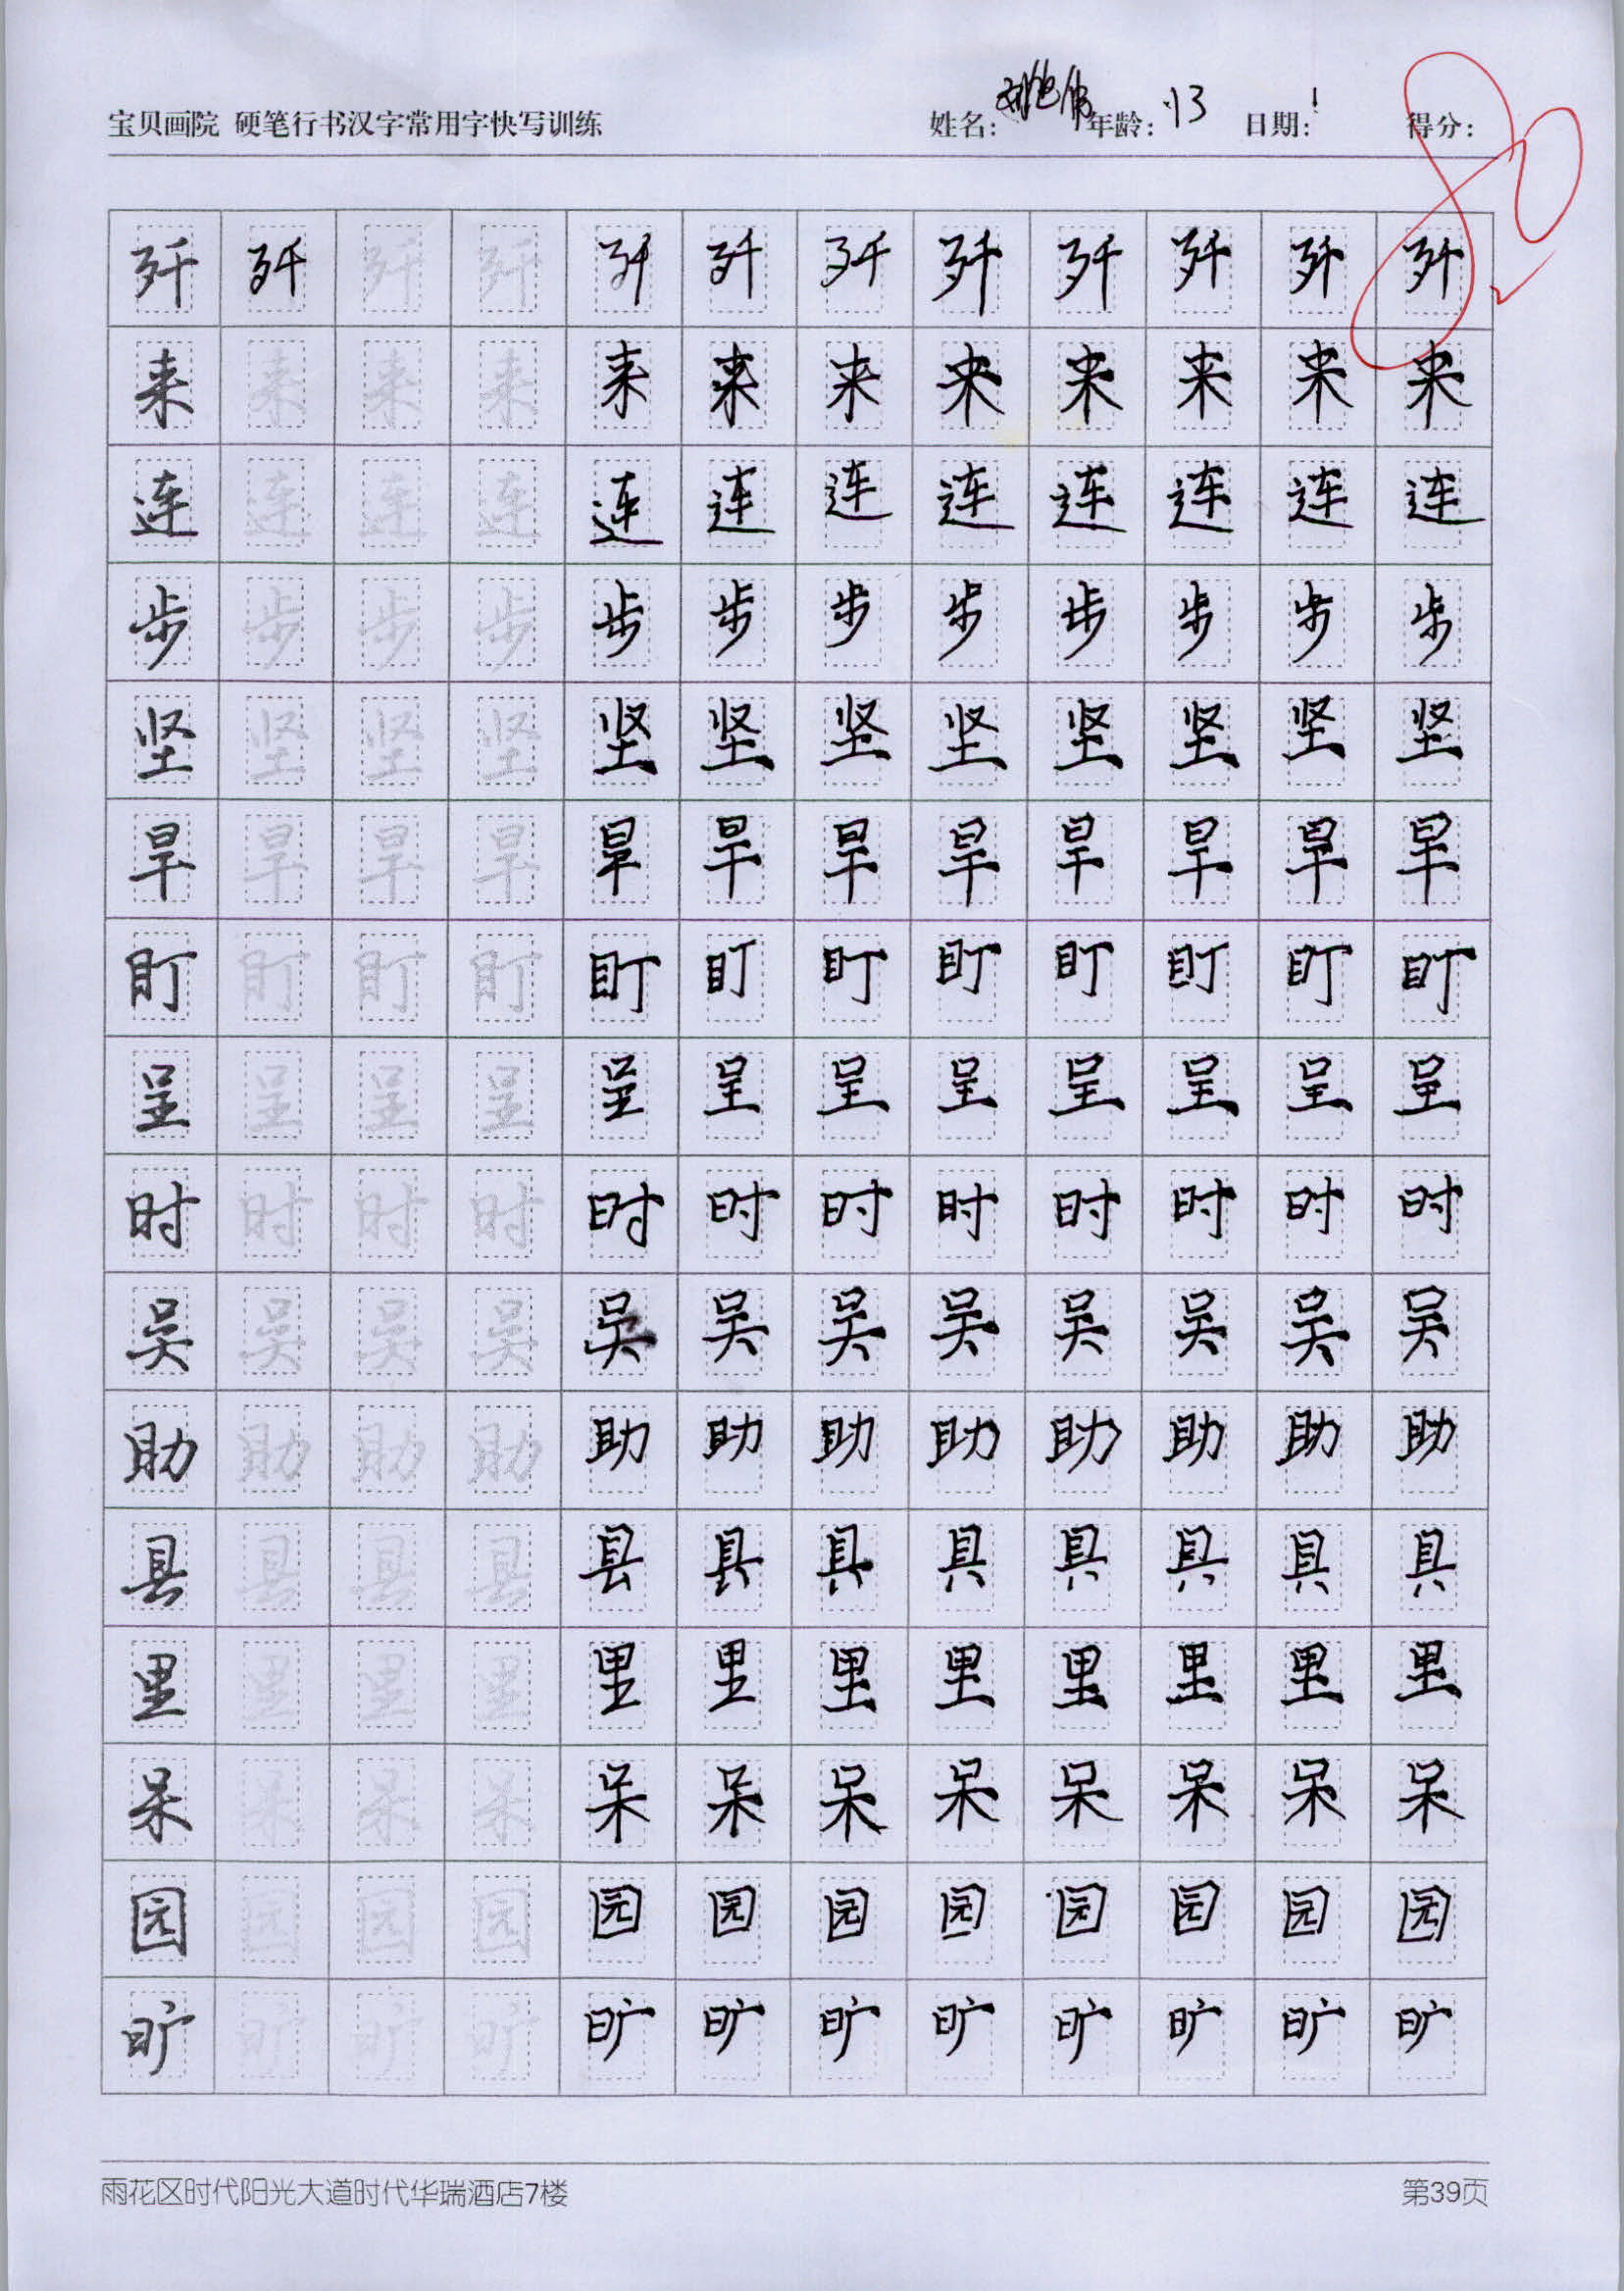 宝贝画院 硬笔行书汉字常用字快写训练 姓名: 年龄: 13 日期: 得分: 80
歼 歼 歼 歼 歼 歼 歼 歼 歼 歼 歼 歼
来 来 来 来 来 来 来 来 来 来 来 来
连 连 连 连 连 连 连 连 连 连 连 连
步 步 步 步 步 步 步 步 步 步 步 步
坚 坚 坚 坚 坚 坚 坚 坚 坚 坚 坚 坚
旱 旱 旱 旱 旱 旱 旱 旱 旱 旱 旱 旱
盯 盯 盯 盯 盯 盯 盯 盯 盯 盯 盯 盯
呈 呈 呈 呈 呈 呈 呈 呈 呈 呈 呈 呈
时 时 时 时 时 时 时 时 时 时 时 时
吴 吴 吴 吴 吴 吴 吴 吴 吴 吴 吴 吴
助 助 助 助 助 助 助 助 助 助 助 助
县 县 县 县 县 具 具 具 具 具 具 具
里 里 里 里 里 里 里 里 里 里 里 里
呆 呆 呆 呆 呆 呆 呆 呆 呆 呆 呆 呆
园 园 园 园 园 园 园 园 园 园 园 园
旷 旷 旷 旷 旷 旷 旷 旷 旷 旷 旷 旷
雨花区时代阳光大道时代华瑞酒店7楼 第39页